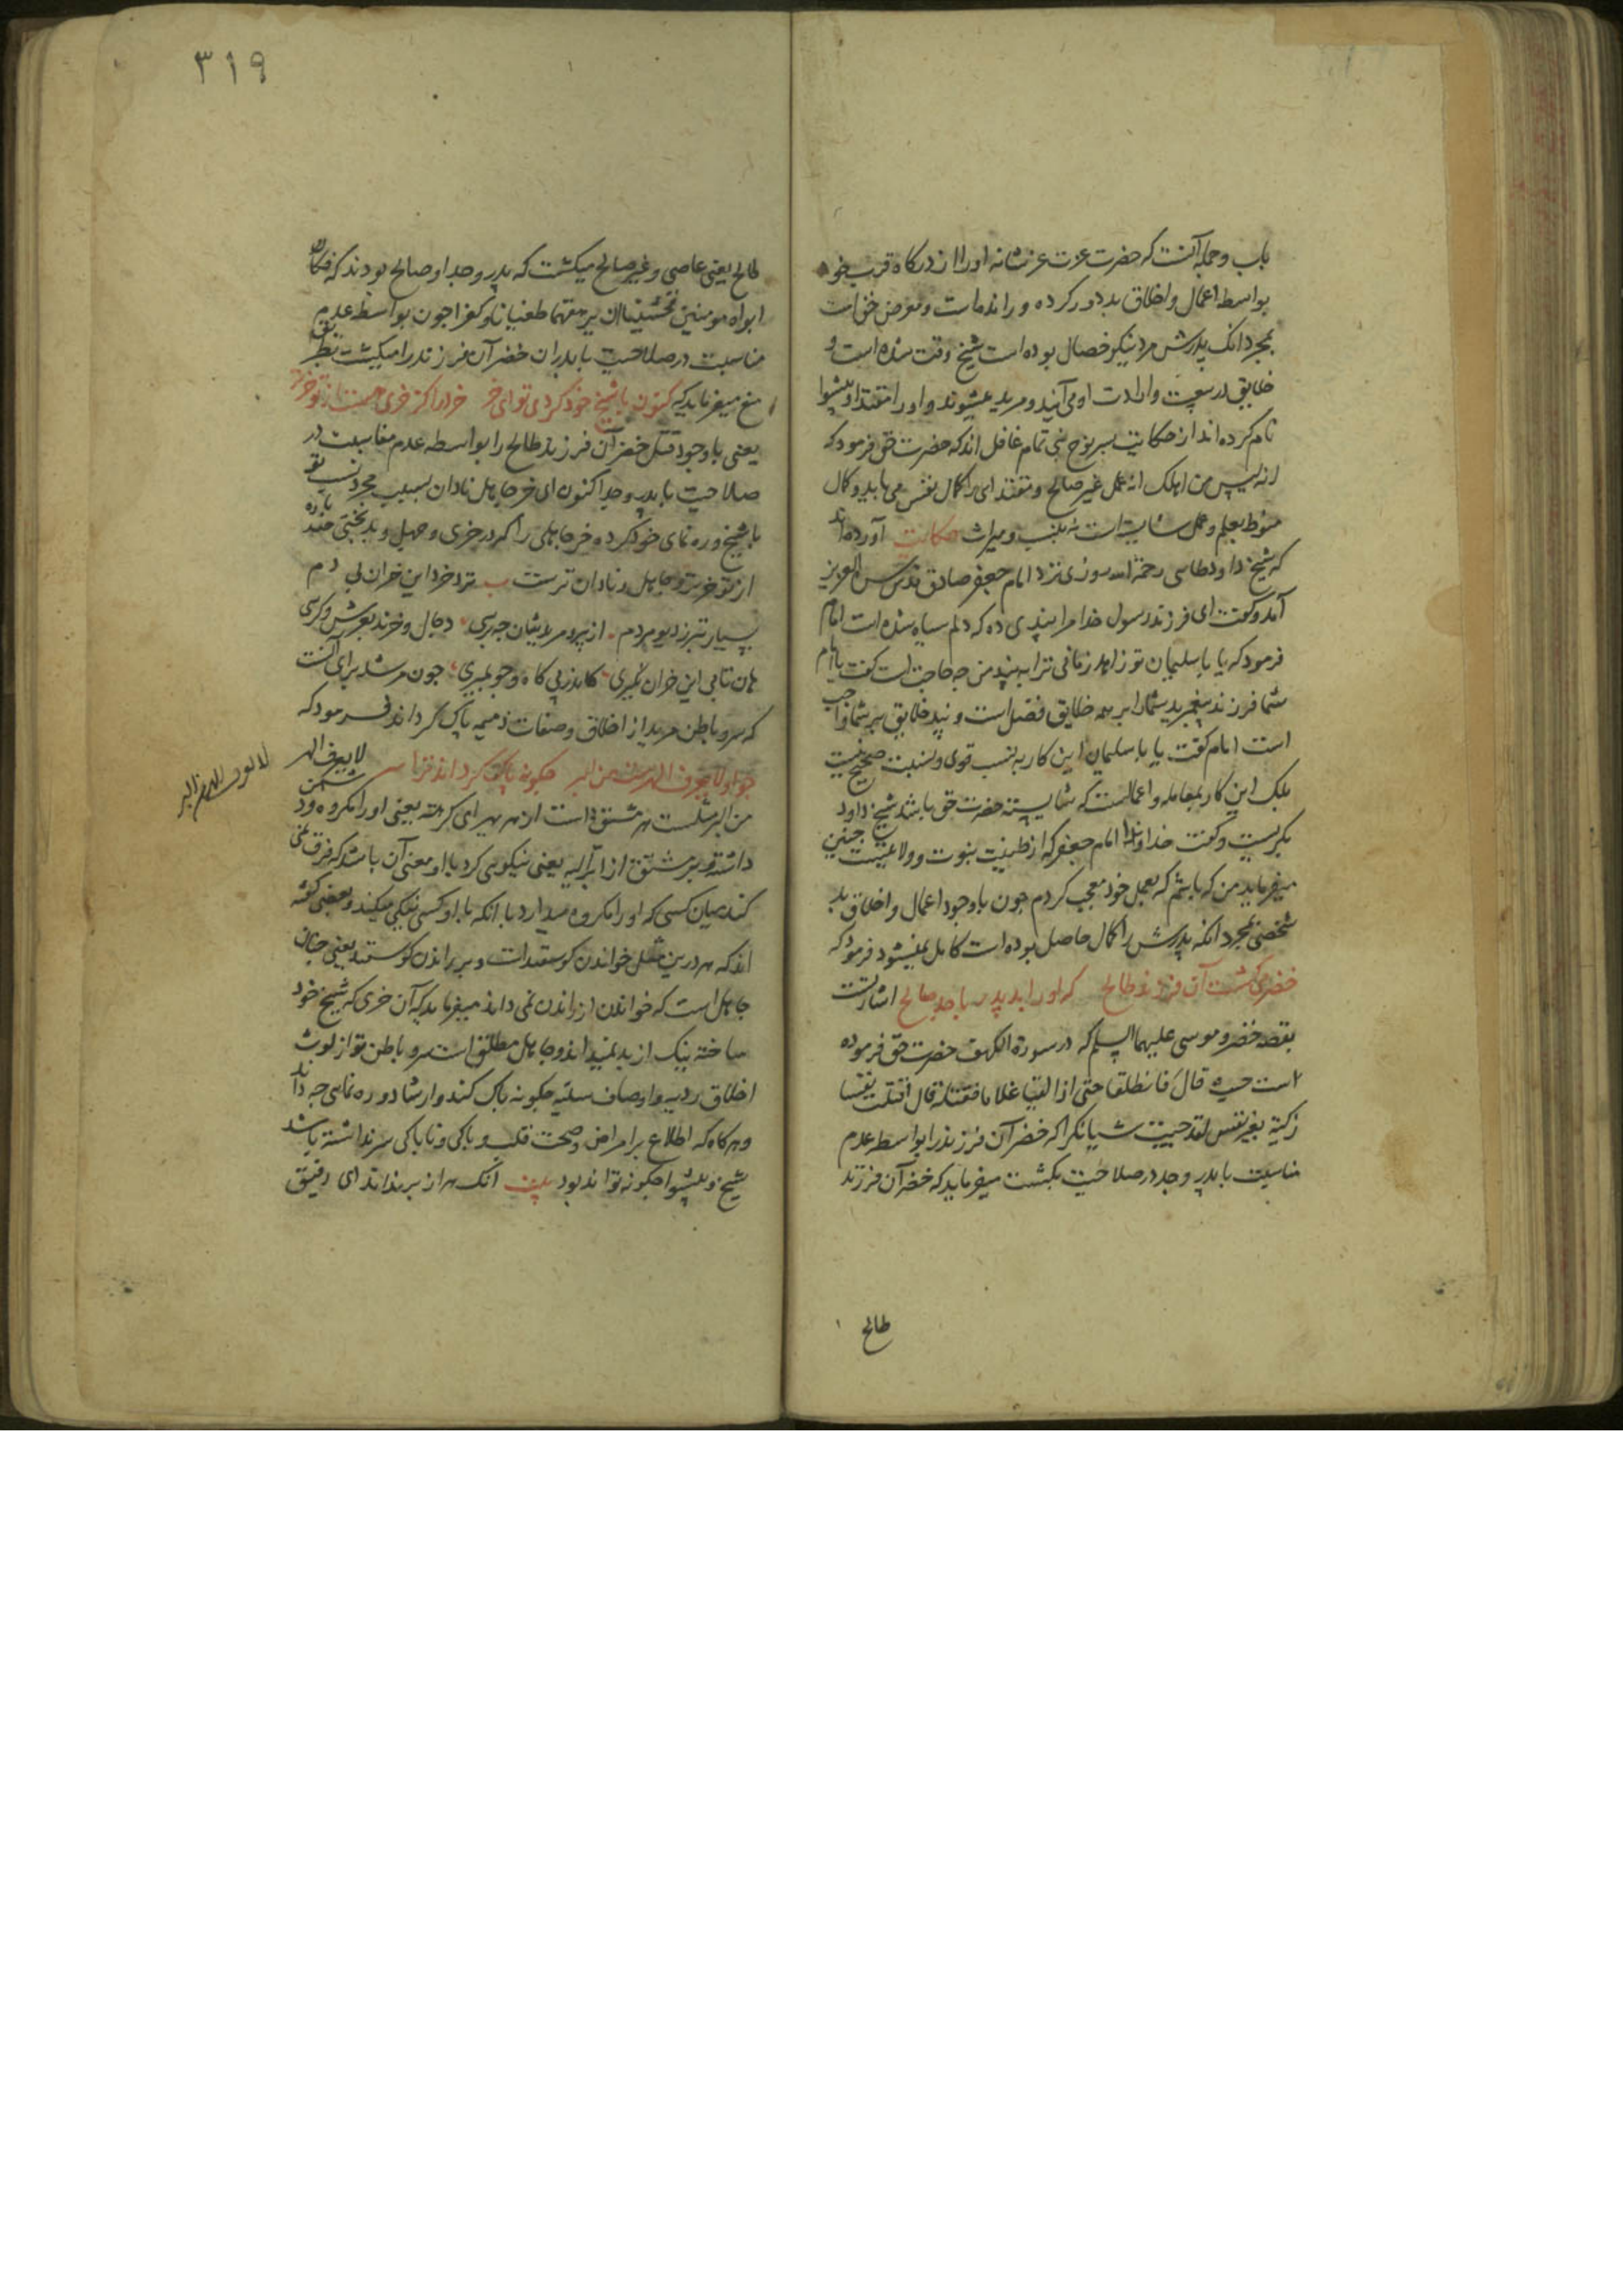 باب و جمله آنست که حضرت عزت عز شانه او را از درگاه قرب خود
بواسطه اعمال و اخلاق بد دور کرده و رانده است و معرض
بمجرد انک پدرش مرد نیکو خصال بوده است شیخ وقت شده است و
خلایق در بیعت و ارادت او می آیند و مرید میشوند و او را مقتدا و پیشوا
نام کرده اند از حکایت پسر نوح نبی تمام غافل اند که حضرت حق فرمود که
انه لیس من اهلک انه عمل غیر صالح و مقتدای را کمال نفس می باید و کمال
منوط بعلم و عمل شایسته است نه بنسب و میراث حکایت آورده اند
که شیخ داود طایی رحمة الله روزی نزد امام جعفر صادق قدس سره العزیز
آمد و گفت ای فرزند رسول خدا مرا پندی ده که دلم سیاه شده است امام
فرمود که یا با سلیمان تو زاهد زمانی ترا به پند من چه حاجت است گفت یا امام
شما فرزند پیغمبرید شما را بر همه خلایق فضل است و پند خلایق بر شما واجب
است امام گفت یا با سلیمان این کار به نسب قوی و نسبت صحیح نیست
بلک این کار بمعامله و اعمالست که شایسته حضرت حق باشد شیخ داود
بگریست و گفت خداوندا امام جعفر که از طینت نبوت و ولایتست چنین
میفرماید من که باشم که بعمل خود معجب گردم چون با وجود اعمال و اخلاق بد
شخصی بمجرد انکه پدرش را کمال حاصل بوده است کامل نمیشود فرمود که
خضر می کشت آن فرزند طالح که او را بد پدر با جد صالح اشارتست
بقصه خضر و موسی علیهما السلم که در سورة الکهف حضرت حق فرموده
است حیث قال فانطلقا حتی اذا لقیا غلاما فقتله قال اقتلت نفسا
زکیة بغیر نفس لقد جئت شیا نکرا که خضر آن فرزند را بواسطه عدم
مناسبت با پدر و جد در صلاحیت بکشت میفرماید که خضر آن فرزند
طالح
۳۱۹
طالح یعنی عاصی و غیر صالح میکشت که پدر و جد او صالح بودند که فکان
ابواه مومنین فخشینا ان یرهقهما طغیانا و کفرا چون بواسطه عدم
مناسبت در صلاحیت با پدران خضر آن فرزند را میکشت
میفرماید که کنون با شیخ خود کردی تو ای خر خری را کز خری هست از تو خرتر
یعنی با وجود قتل خضر آن فرزند طالح را بواسطه عدم مناسبت در
صلاحیت با پدر و جد اکنون ای خر جاهل نادان بسبب مجرد نسب تو
با شیخ و ره نمای خود کرده خر جاهلی را که در خری و جهل و بدبختی
از تو خرتر و جاهل و نادان ترست نزد خرد این خران بی دم
بسیار بتر ز دیو مردم از پیر و مریدشان چه پرسی دجال و خرند بعرش و کرسی
هان تا پی این خران نگیری کاندر پی کاه و جو بمیری چون مرشد برای آنست
که سر و باطن مرید از اخلاق و صفات ذمیمه پاک گرداند فرمود که
چو او لا یعرف الهر ست من البر چگونه پاک گرداند ترا سر لا یعرف الهر
من البر مثلست هر مشتق است از هر یهر ای کرهته یعنی او را مکروه
داشته و بر مشتق از ابر الیه یعنی نیکویی کرد با او معنی آن باشد که فرق نمی
کند میان کسی که او را مکروه میدارد با انکه با او کسی نیکی میکند و بعضی گفته
اند که هر درین مثل خواندن گوسفندست و بر راندن گوسفند یعنی چنان
جاهل است که خواندن از راندن نمی داند میفرماید که آن خری که شیخ خود
ساخته نیک از بد نمیداند و جاهل مطلق است سر و باطن تو از لوث
اخلاق ردیه و اوصاف سیئه چگونه پاک کند و ارشاد و ره نمایی چه داند
و هر گاه که اطلاع بر امراض و صحت قلب و پاکی و ناپاکی سر نداشته باشد
شیخ و پیشوا چگونه تواند بود بیت آنک هر از بر نداند ای رفیق